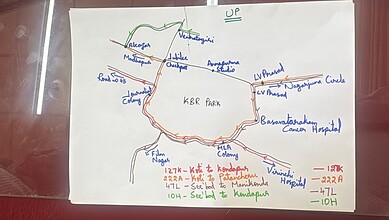 UP
Venkatagiri
Alcazar
Madhapur
Jubilee
Checkpost
Annapurna
Studio
LV Prasad
Nagarjuna Circle
LV Prasad
Road no 45
Journalist
Colony
KBR PARK
Basavatarakam
Cancer Hospital
Film
Nagar
MLA
Colony
Virinchi
Hospital
127K - Koti to Kondapur
222A - Koti to Patancheru
47L - Sec'bad to Manikonda
10H - Sec'bad to Kondapur
127K
222A
47L
10H